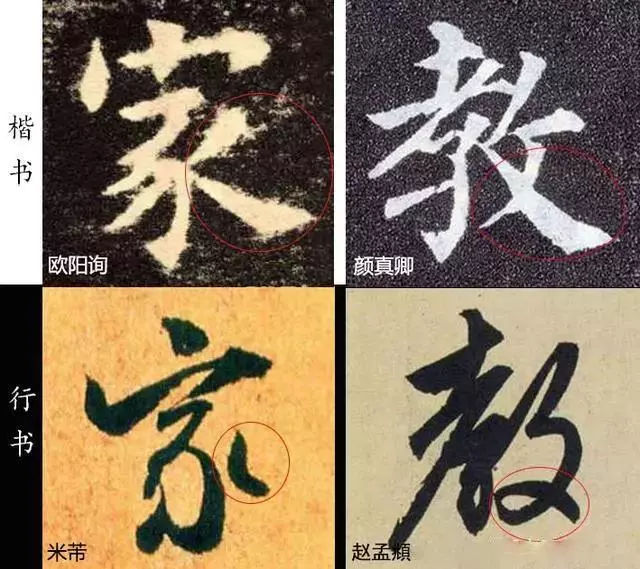 楷书
家
教
欧阳询
颜真卿
行书
家
教
米芾
赵孟頫